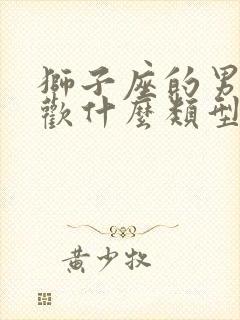 獅子座的男
歡什麼類型
黃少牧